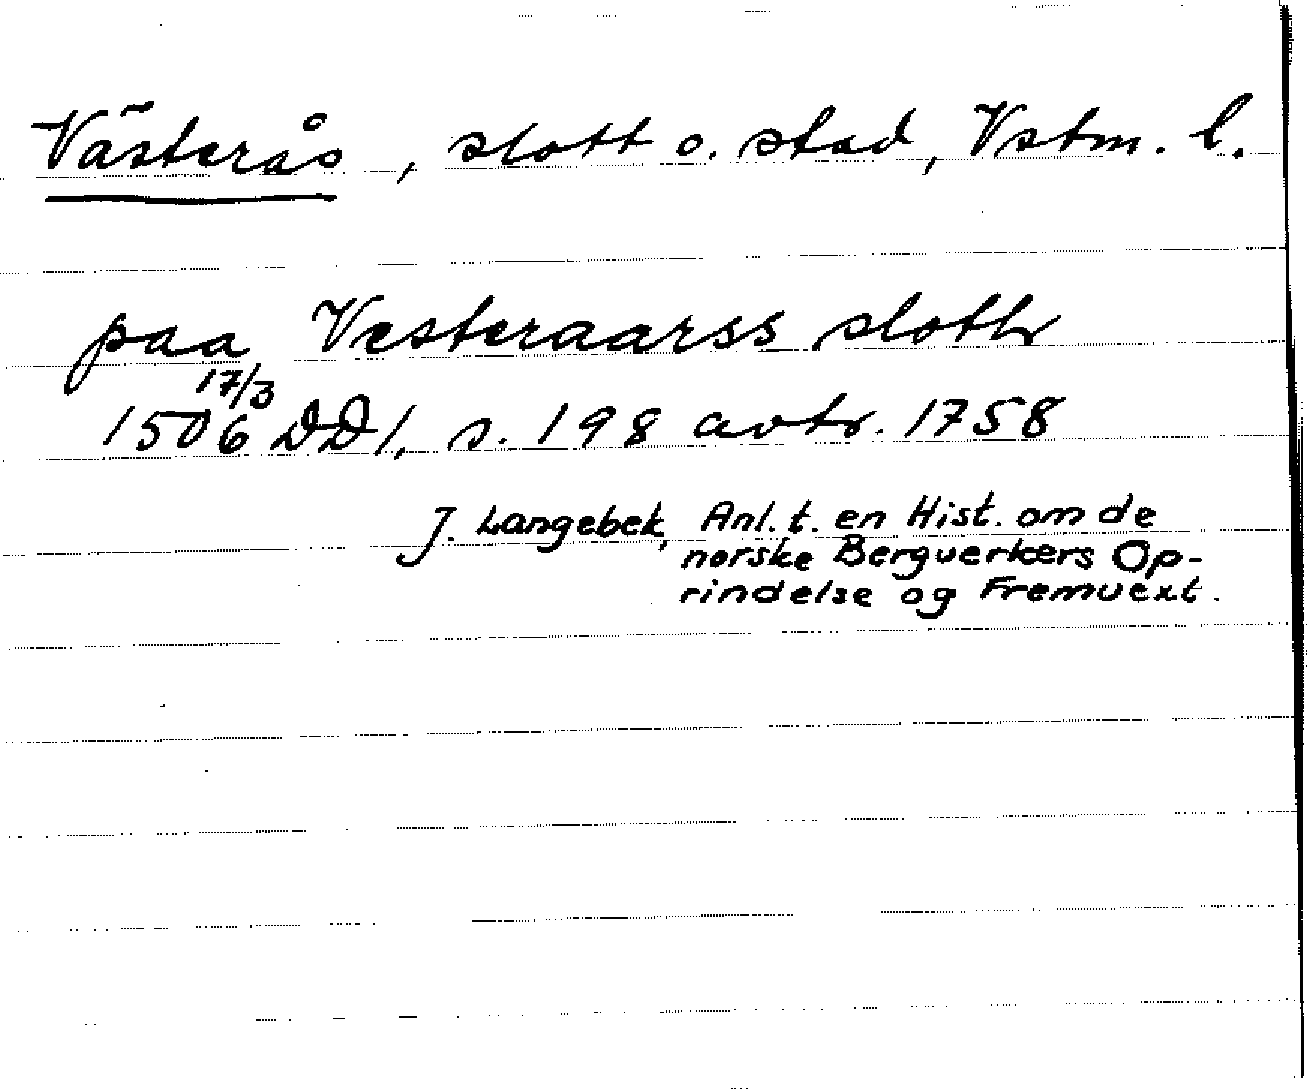 Västerås, slott o. stad, Vstm. l.
paa Vesteraarss sloth
17/3
1506 DD1, s. 198 avtr. 1758
J. Langebek, Anl. t. en Hist. om de
norske Bergverkers Op-
rindelse og Fremvext.